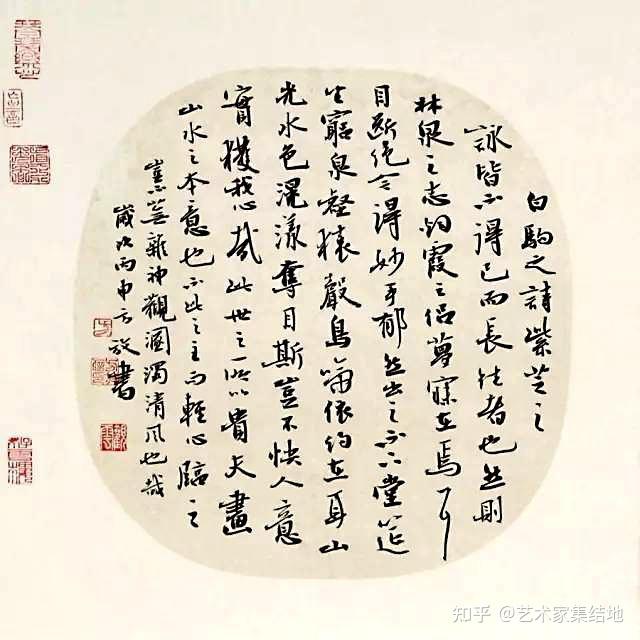 白駒之詩紫芝之
詠皆不得已而長往者也然則
林泉之志烟霞之侶夢寐在焉耳
目斷绝今得妙手郁然出之不下堂筵
坐窮泉壑猿聲鳥啼依約在耳山
光水色滉漾奪目斯豈不快人意
實獲我心哉此世之所以貴夫畫
山水之本意也不此之主而輕心臨之
豈不蕪雜神觀溷濁清风也哉
歲次丙申方放書
知乎 @艺术家集结地